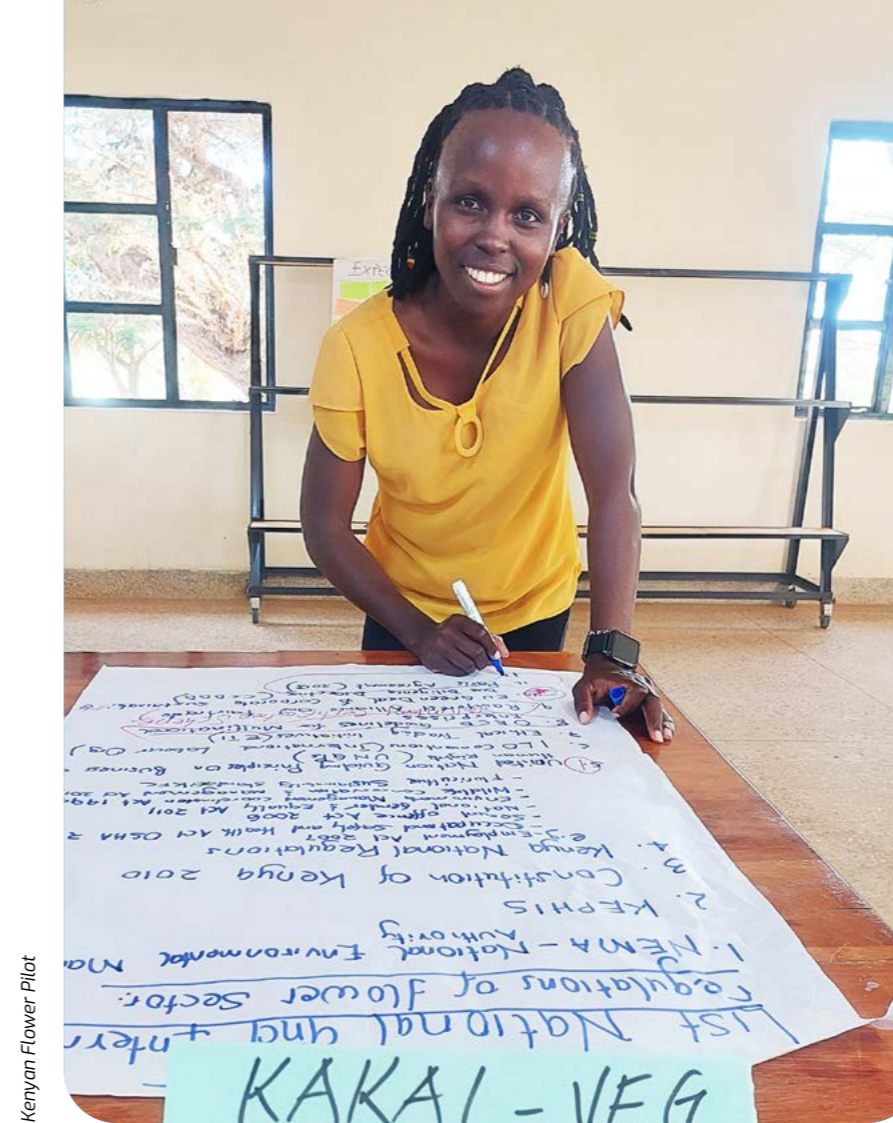 Kenyan Flower Pilot
EXPEC
List National and Intern
regulations of flower Sector.
1. NEMA - National Environmental Ma
Authority
2. KEPHIS
3. Constitution of Kenya 2010
4. Kenya National Regulations
e.g Employment Act 2007
- Safety and Health Act OSHA 2
- Sexual offence Act 2006
- National Gender & Equality Act 2011
- Management coordination Act 199
- Wildlife Conservation & management Act 201
- Floriculture Sustainability Standard KFC
United Nation Guiding Principles on Business
Human Rights (UNGPs)
ILO Conventions (International Labour Org)
7. Ethical Trading Initiatives (ETI)
8. OECD Guidelines for Multinational
Enterprises
Green Deal & Corporate
Due Diligence Directive (CSDDD)
11 Paris Agreement (2015)
KAKAI - VEG